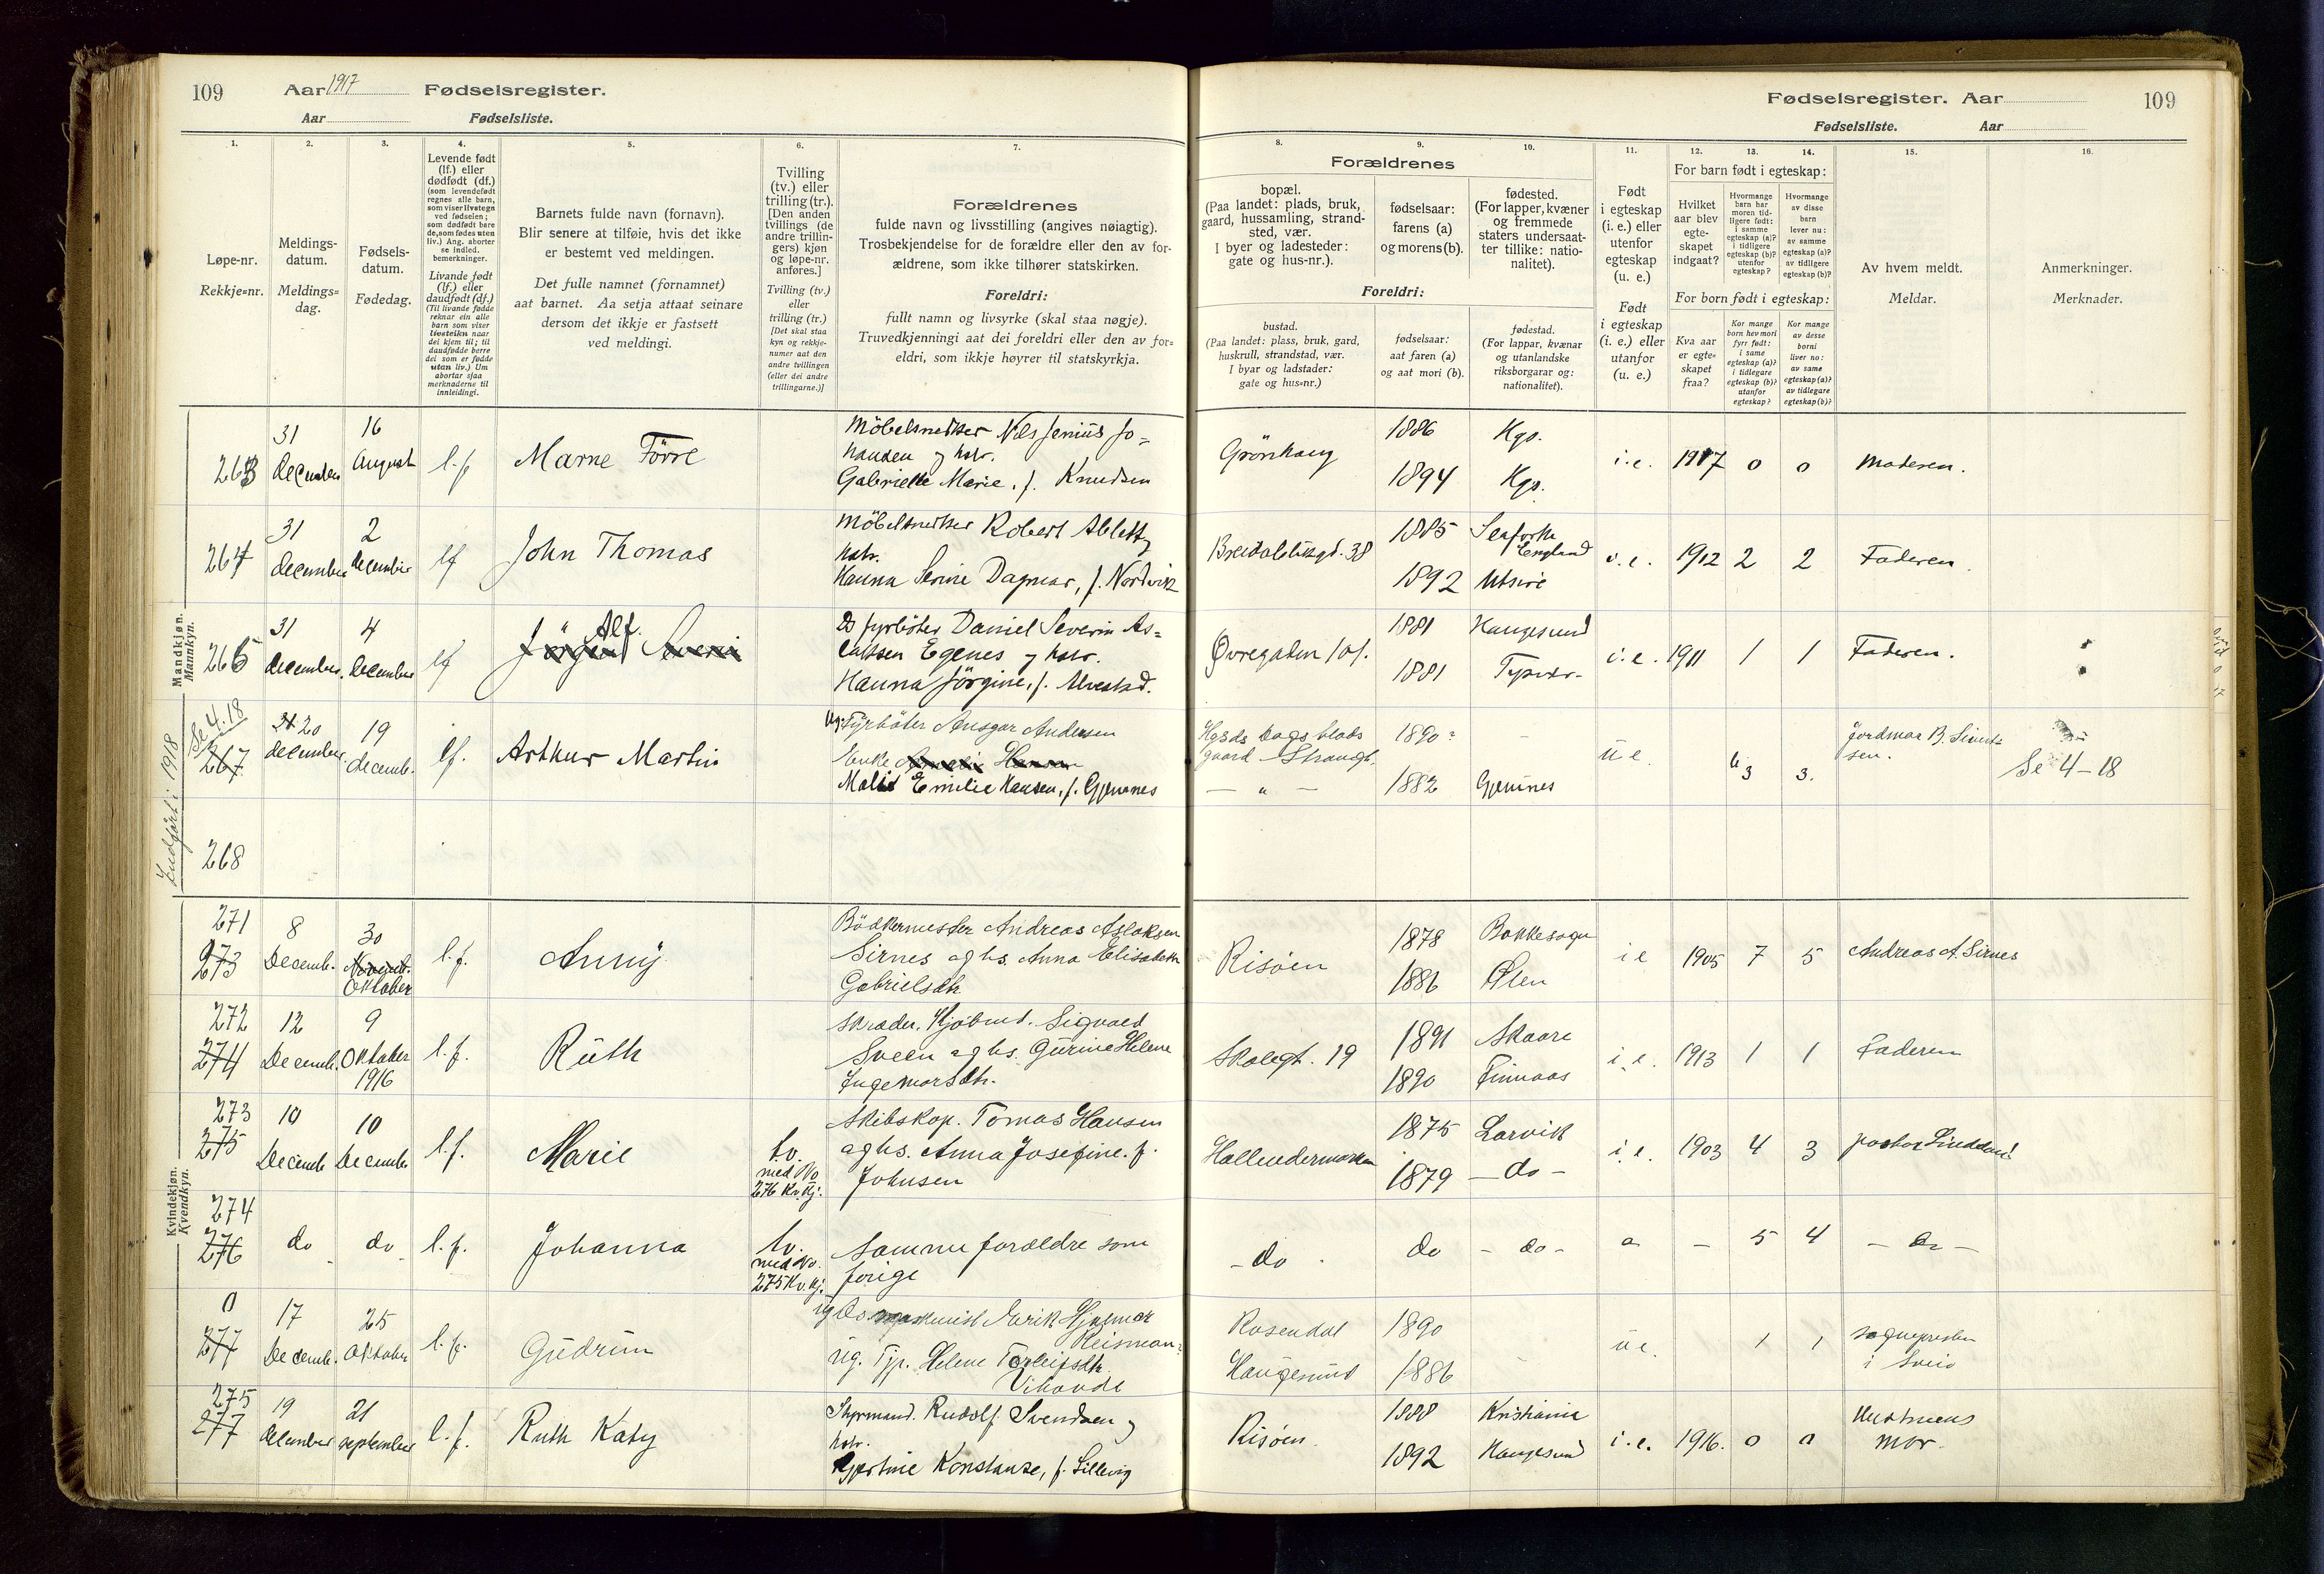 109
Aar 1917
Fødselsregister.
Aar
Fødselsliste.
1.
Løpe-nr.
Rekkje=nr.
2.
Meldings-
datum.
Meldings-
dag.
3.
Fødsels-
datum.
Fødedag.
4.
Levende født
(lf.) eller
dødfødt (df.)
(som levendefødt
regnes alle barn,
som viser livstegn
ved fødselen;
som dødfødt bare
de, som fødes uten
liv.) Ang. aborter
se indled.
bemerkninger.
Livande født
(lf.) eller
daudfødt (df.)
(Til livande fødde
reknar ein alle
barn som viser
livsteikn naar
dei kjem til; til
daudfødde berre
dei som er fødde
utan liv.) Um
abortar sjaa
merknaderne til
innleidingi.
5.
Barnets fulde navn (fornavn).
Blir senere at tilføie, hvis det ikke
er bestemt ved meldingen.
Det fulle namnet (fornamnet)
aat barnet. Aa setja attaat seinare
dersom det ikkje er fastsett
ved meldingi.
6.
Tvilling
(tv.) eller
trilling (tr.).
[Den anden
tvillings (de
andre trillin-
gers) kjøn
og løpe-nr.
anføres.]
Tvilling (tv.)
eller
trilling (tr.)
[Det skal staa
kyn og rekkje-
numer aat den
andre tvillingen
(eller dei andre
trillingarne.)]
7.
Forældrenes
fulde navn og livsstilling (angives nøiagtig).
Trosbekjendelse for de forældre eller den av for-
ældrene, som ikke tilhører statskirken.
Foreldri:
fullt namn og livsyrke (skal staa nøgje).
Truvedkjenningi aat dei foreldri eller den av for=
eldri, som ikkje høyrer til statskyrkja.
Mandkjøn.
Mannkyn.
263
31
december
16
August
l.f
Marne Förre
Möbelsnedker Nils Jenius Jo=
hansen og hstr.
Gabrielle Marie, f. Knudsen
264
31
december
2
december
lf
John Thomas
Möbelsnedker Robert Ablett og
hstr.
Hanna Serine Dagmar, f. Nordvik
265
31
december.
4
december
lf
Alf.
Jörgen Severin
Ds fyrböter Daniel Severin As=
laksen Egenes og hstr.
Hanna Jörgine, f. Alvestad.
Indført i 1918
Se 4.18
267
31 20
december.
19
decemb.
lf.
Arthur Martin
Ug. Fyrböter Ansgar Andersen
Enke Hansen
Malid Emilie Hansen, f. Gjemnes
268
Kvindekjøn.
Kvendkyn.
271
273
8
Decemb.
30
Novemb.
Oktober
l.f.
Anny
Bödkermester Andreas Aslaksen
Sirnes og hs. Anna Elisabeth
Gabrielsdtr.
272
274
12
Decemb.
9
Oktober
1916
l.f.
Ruth
Skræder, Kjöbmd. Sigvald
Sveen og hs. Gurine Helene
Ingemarsdtr.
273
275
10
Decemb
10
Decembr
l.f.
Marie
tv.
med No
276 Kv.Kj.
Skibskap. Tomas Hansen
og hs. Anna Josefine. f.
Johnsen
274
276
do
do
l.f.
Johanna
tv.
med No.
275 Kv.Kj.
Samme forældre som
forige
0
277
17
Decemb.
25
Oktober
l.f.
Gudrun
ug Ds maskinist Hjalmar
Reisman
ug. Tjp. Helene Torleifsdtr.
Vikande
275
277
19
december
21
september
l.f.
Ruth Katy
Styrmand. Rudolf Svendsen og
hstr.
Gjertine Konstanse, f. Lillevig
Fødselsregister. Aar
109
Fødselsliste.
Aar
8.
Forældrenes
bopæl.
(Paa landet: plads, bruk,
gaard, hussamling, strand-
sted, vær.
I byer og ladesteder:
gate og hus-nr.).
9.
fødselsaar:
farens (a)
og morens (b).
10.
fødested.
(For lapper, kvæner
og fremmede
staters undersaat-
ter tillike: natio-
nalitet).
Foreldri:
bustad.
(Paa landet: plass, bruk, gard,
huskrull, strandstad, vær.
I byar og ladstader:
gate og hus=nr.)
fødselsaar:
aat faren (a)
og aat mori (b).
fødestad.
(For lappar, kvænar
og utanlandske
riksborgarar og:
nationalitet).
11.
Født
i egteskap
(i. e.) eller
utenfor
egteskap
(u. e.)
Født
i egteskap
(i. e.) eller
utanfor
(u. e.)
12.
13.
14.
For barn født i egteskap:
Hvilket
aar blev
egte-
skapet
indgaat?
Hvormange
barn har
moren tid-
ligere født:
i samme
egteskap (a)?
i tidligere
egteskap (b)?
utenfor
egteskap?
Hvormange
av disse
barn
lever nu:
av samme
egteskap (a)?
av tidligere
egteskap (b)?
For born født i egteskap:
Kva aar
er egte-
skapet
fraa?
Kor mange
born hev mori
fyrr født:
i same
egteskap (a)?
i tidlegare
egteskap (b)?
utanfor
egteskap?
Kor mange
av desse
borni
liver no:
av same
egteskap (a)?
av tidlegare
egteskap (b)?
15.
Av hvem meldt.
Meldar.
16.
Anmerkninger.
Merknader.
Grönhaug
1886
1894
Hgs.
Hgs.
i.e.
1917
0
0
Moderen.
Breidablikgt. 38
1885
1892
Seaforth
England
Utsire
i.e.
1912
2
2
Faderen.
Øvregaden 101.
1881
1881
Haugesund
Tysvær.
i.e.
1911
1
1
Faderen.
Hgsds Dagsblads
gaard Strandgt.
— " —
1890?
1882
—
Gjemnes
u e.
3
3.
Jordmor B. Sivert-
sen.
Se 4–18
Risöen
1878
1886
Bokkesogn
Ølen
i e
1905
7
5
Andreas A. Sirnes
Skolegt. 19
1891
1890
Skaare
Finnaas
i.e.
1913
1
1
Faderen
Hollendermarken
1875
1879
Larvik
– do –
i.e.
1903
4
3
pastor Lindland
– do
do
– do –
—
5
4
– do –
Rosendal
Haugesund
1890
1886
u e.
1
1
sognepresten
i Sveio
Risöen.
1888
1892
Kristiania
Haugesund
i.e.
1916.
0
0
Hustruens
mor.